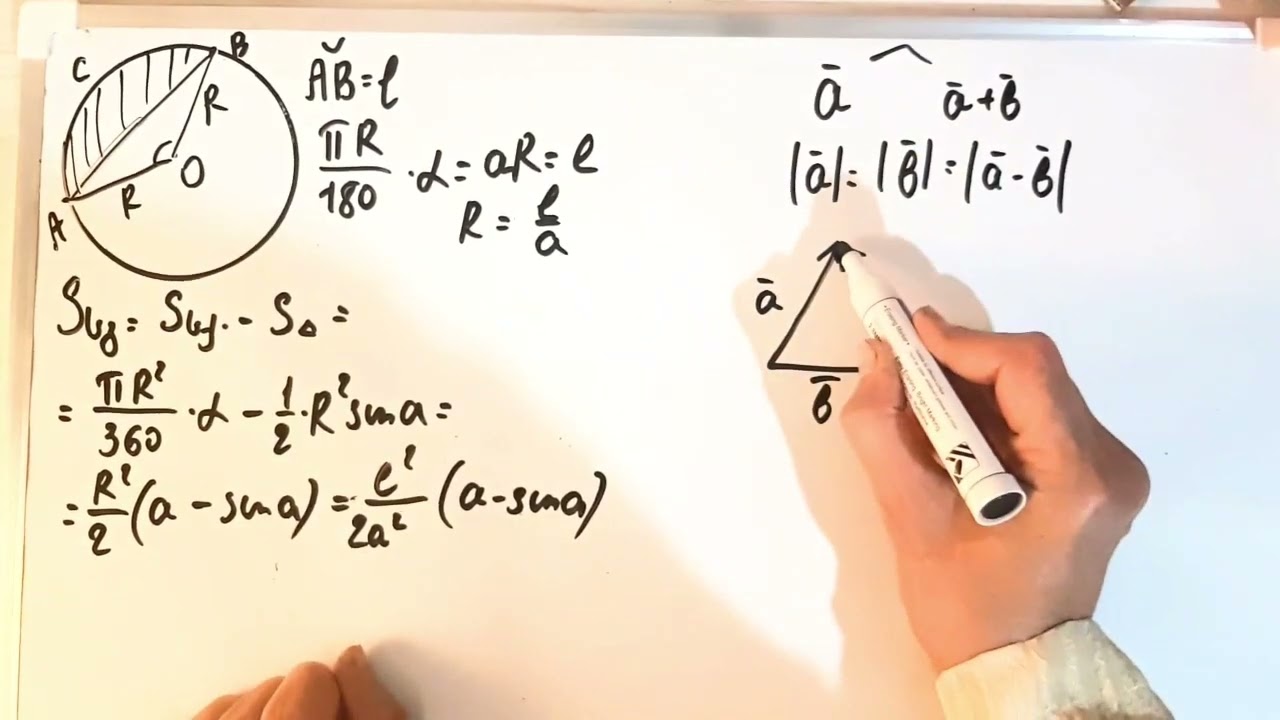 C
B
R
R
O
A
A͝B = l
πR/180 · α = aR = l
R = l/a
S = S - S△ =
= πR²/360 · α - 1/2 · R² sin a =
= R²/2 (a - sin a) = l²/2a² (a - sin a)
ā ^ ā + b̄
|ā| = |b̄| = |ā - b̄|
ā
b̄